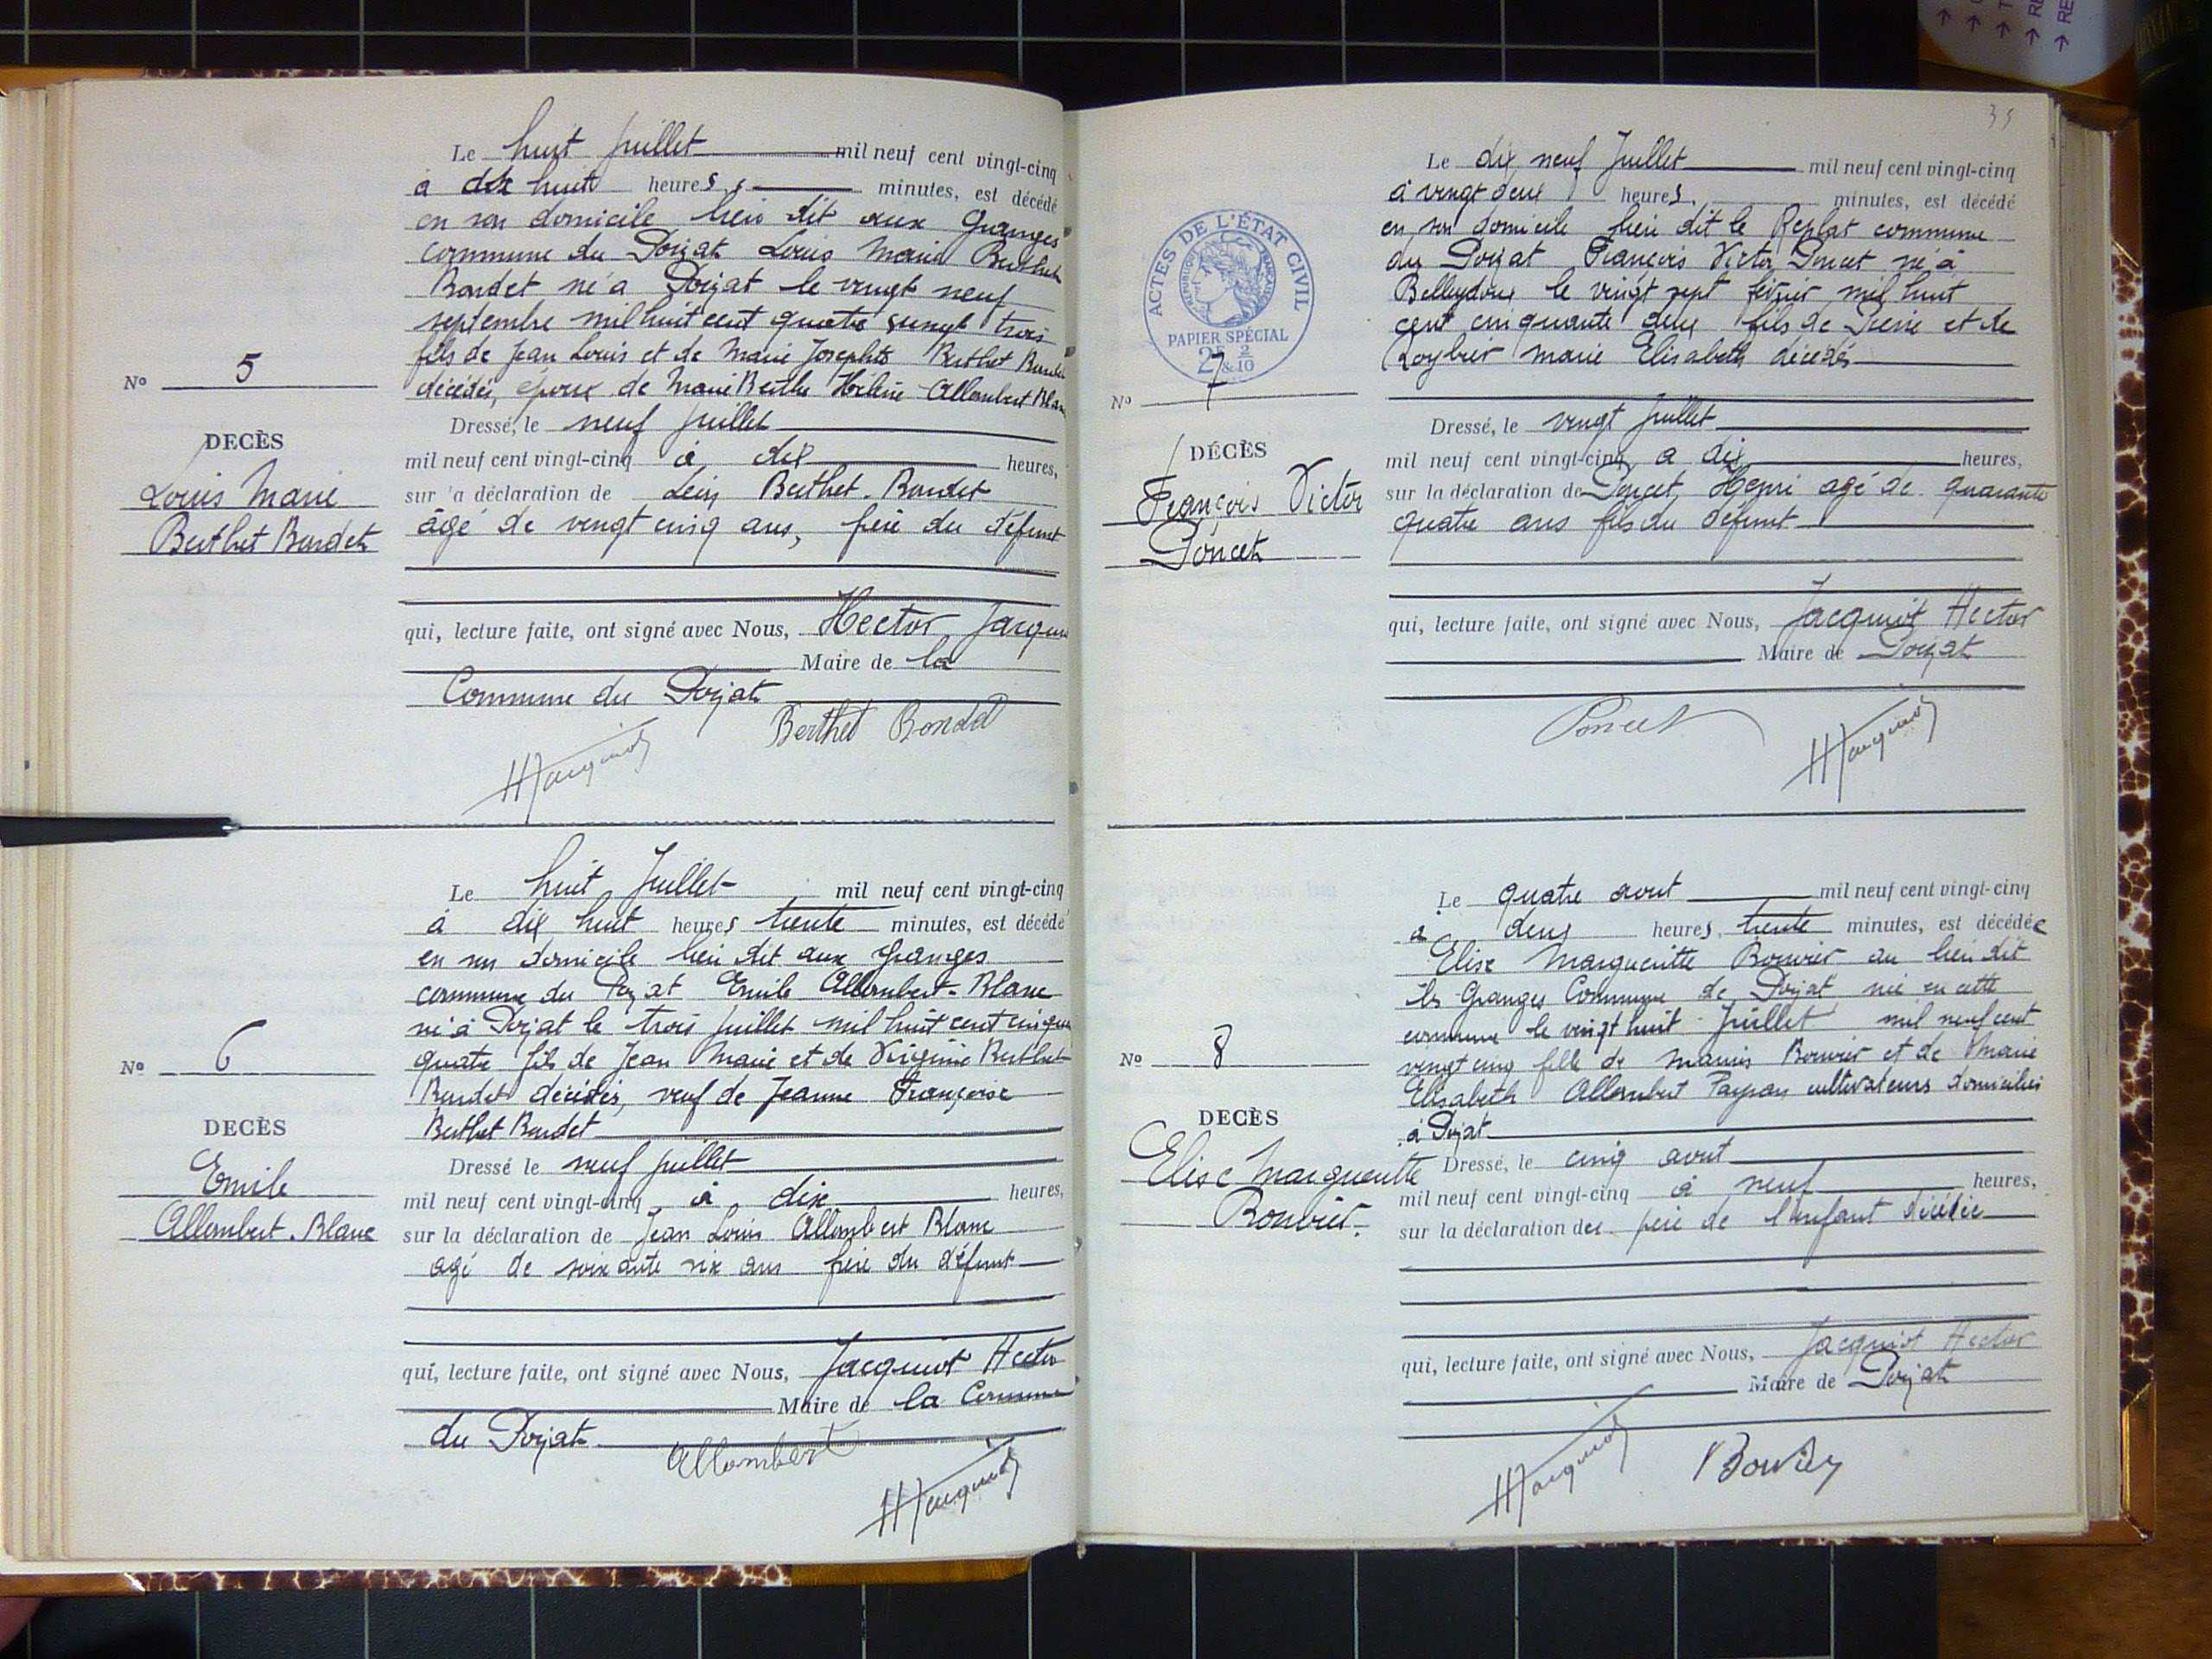 Le huit juillet mil neuf cent vingt-cinq
à dix huit heures, minutes, est décédé
en son domicile lieu dit aux Granges
commune du Poizat Louis Marie Berthet
Bondet né à Poizat le vingt neuf
septembre mil huit cent quatre vingt trois
fils de Jean Louis et de Marie Josephte Berthet Bondet
décédés, époux de Marie Berthe Hélène Allombert Blanc
Nº 5
DECÈS
Louis Marie
Berthet Bondet
Dressé, le neuf juillet
mil neuf cent vingt-cinq à dix heures,
sur la déclaration de Berthet-Bondet
âgé de vingt cinq ans, frère du défunt
qui, lecture faite, ont signé avec Nous, Hector Jacquiot
Maire de la
Commune du Poizat
HJacquiot
Berthet Bondet
Le huit Juillet mil neuf cent vingt-cinq
à dix huit heures trente minutes, est décédé
en son domicile lieu dit aux granges
commune du Poizat Emile Allombert-Blanc
né à Poizat le trois juillet mil huit cent cinquante
quatre fils de Jean Marie et de Virginie Berthet
Bondet décédés, veuf de Jeanne Françoise
Berthet Bondet
Nº 6
DECÈS
Emile
Allombert-Blanc
Dressé le neuf juillet
mil neuf cent vingt-cinq à dix heures,
sur la déclaration de Jean Louis Allombert Blanc
agé de soixante six ans frère du défunt
qui, lecture faite, ont signé avec Nous, Jacquiot Hector
Maire de la Commune
du Poizat
Allombert
HJacquiot
35
ACTES DE L'ÉTAT CIVIL
RÉPUBLIQUE FRANÇAISE
PAPIER SPÉCIAL
2F & 2/10
Le dix neuf Juillet mil neuf cent vingt-cinq
à vingt deux heures, minutes, est décédé
en son domicile lieu dit le Replat commune
du Poizat François Victor Poncet né à
Belleydoux le vingt sept février mil huit
cent cinquante deux fils de Pierre et de
marie Elisabeth décédés
Nº 7
DÉCÈS
François Victor
Poncet
Dressé, le vingt juillet
mil neuf cent vingt-cinq à dix heures,
sur la déclaration de Poncet, Henri agé de quarante
quatre ans fils du défunt
qui, lecture faite, ont signé avec Nous, Jacquiot Hector
Maire de Poizat
Poncet
HJacquiot
Le quatre aout mil neuf cent vingt-cinq
à deux heures, trente minutes, est décédée
Elise Margueritte Bouvier au lieu dit
les Granges Commune de Poizat née en cette
commune le vingt huit Juillet mil neuf cent
vingt cinq fille de Bouvier et de Marie
Elisabeth Allombert cultivateurs domiciliés
à Poizat
Nº 8
DECÈS
Elise Margueritte
Bouvier.
Dressé, le cinq aout
mil neuf cent vingt-cinq à neuf heures,
sur la déclaration du père de l'enfant décédée
qui, lecture faite, ont signé avec Nous, Jacquiot Hector
Maire de Poizat
HJacquiot
Bouvier